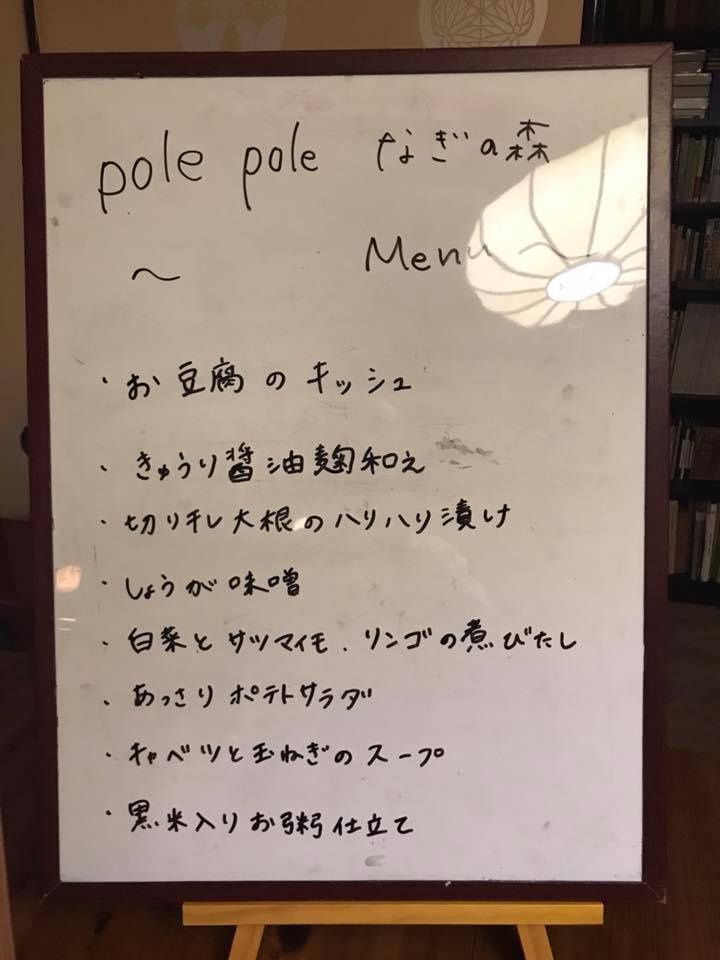 pole pole なぎの森
〜 Menu 〜
・お豆腐のキッシュ
・きゅうり醤油麹和え
・切り干し大根のハリハリ漬け
・しょうが味噌
・白菜とサツマイモ、リンゴの煮びたし
・あっさりポテトサラダ
・キャベツと玉ねぎのスープ
・黒米入りお粥仕立て